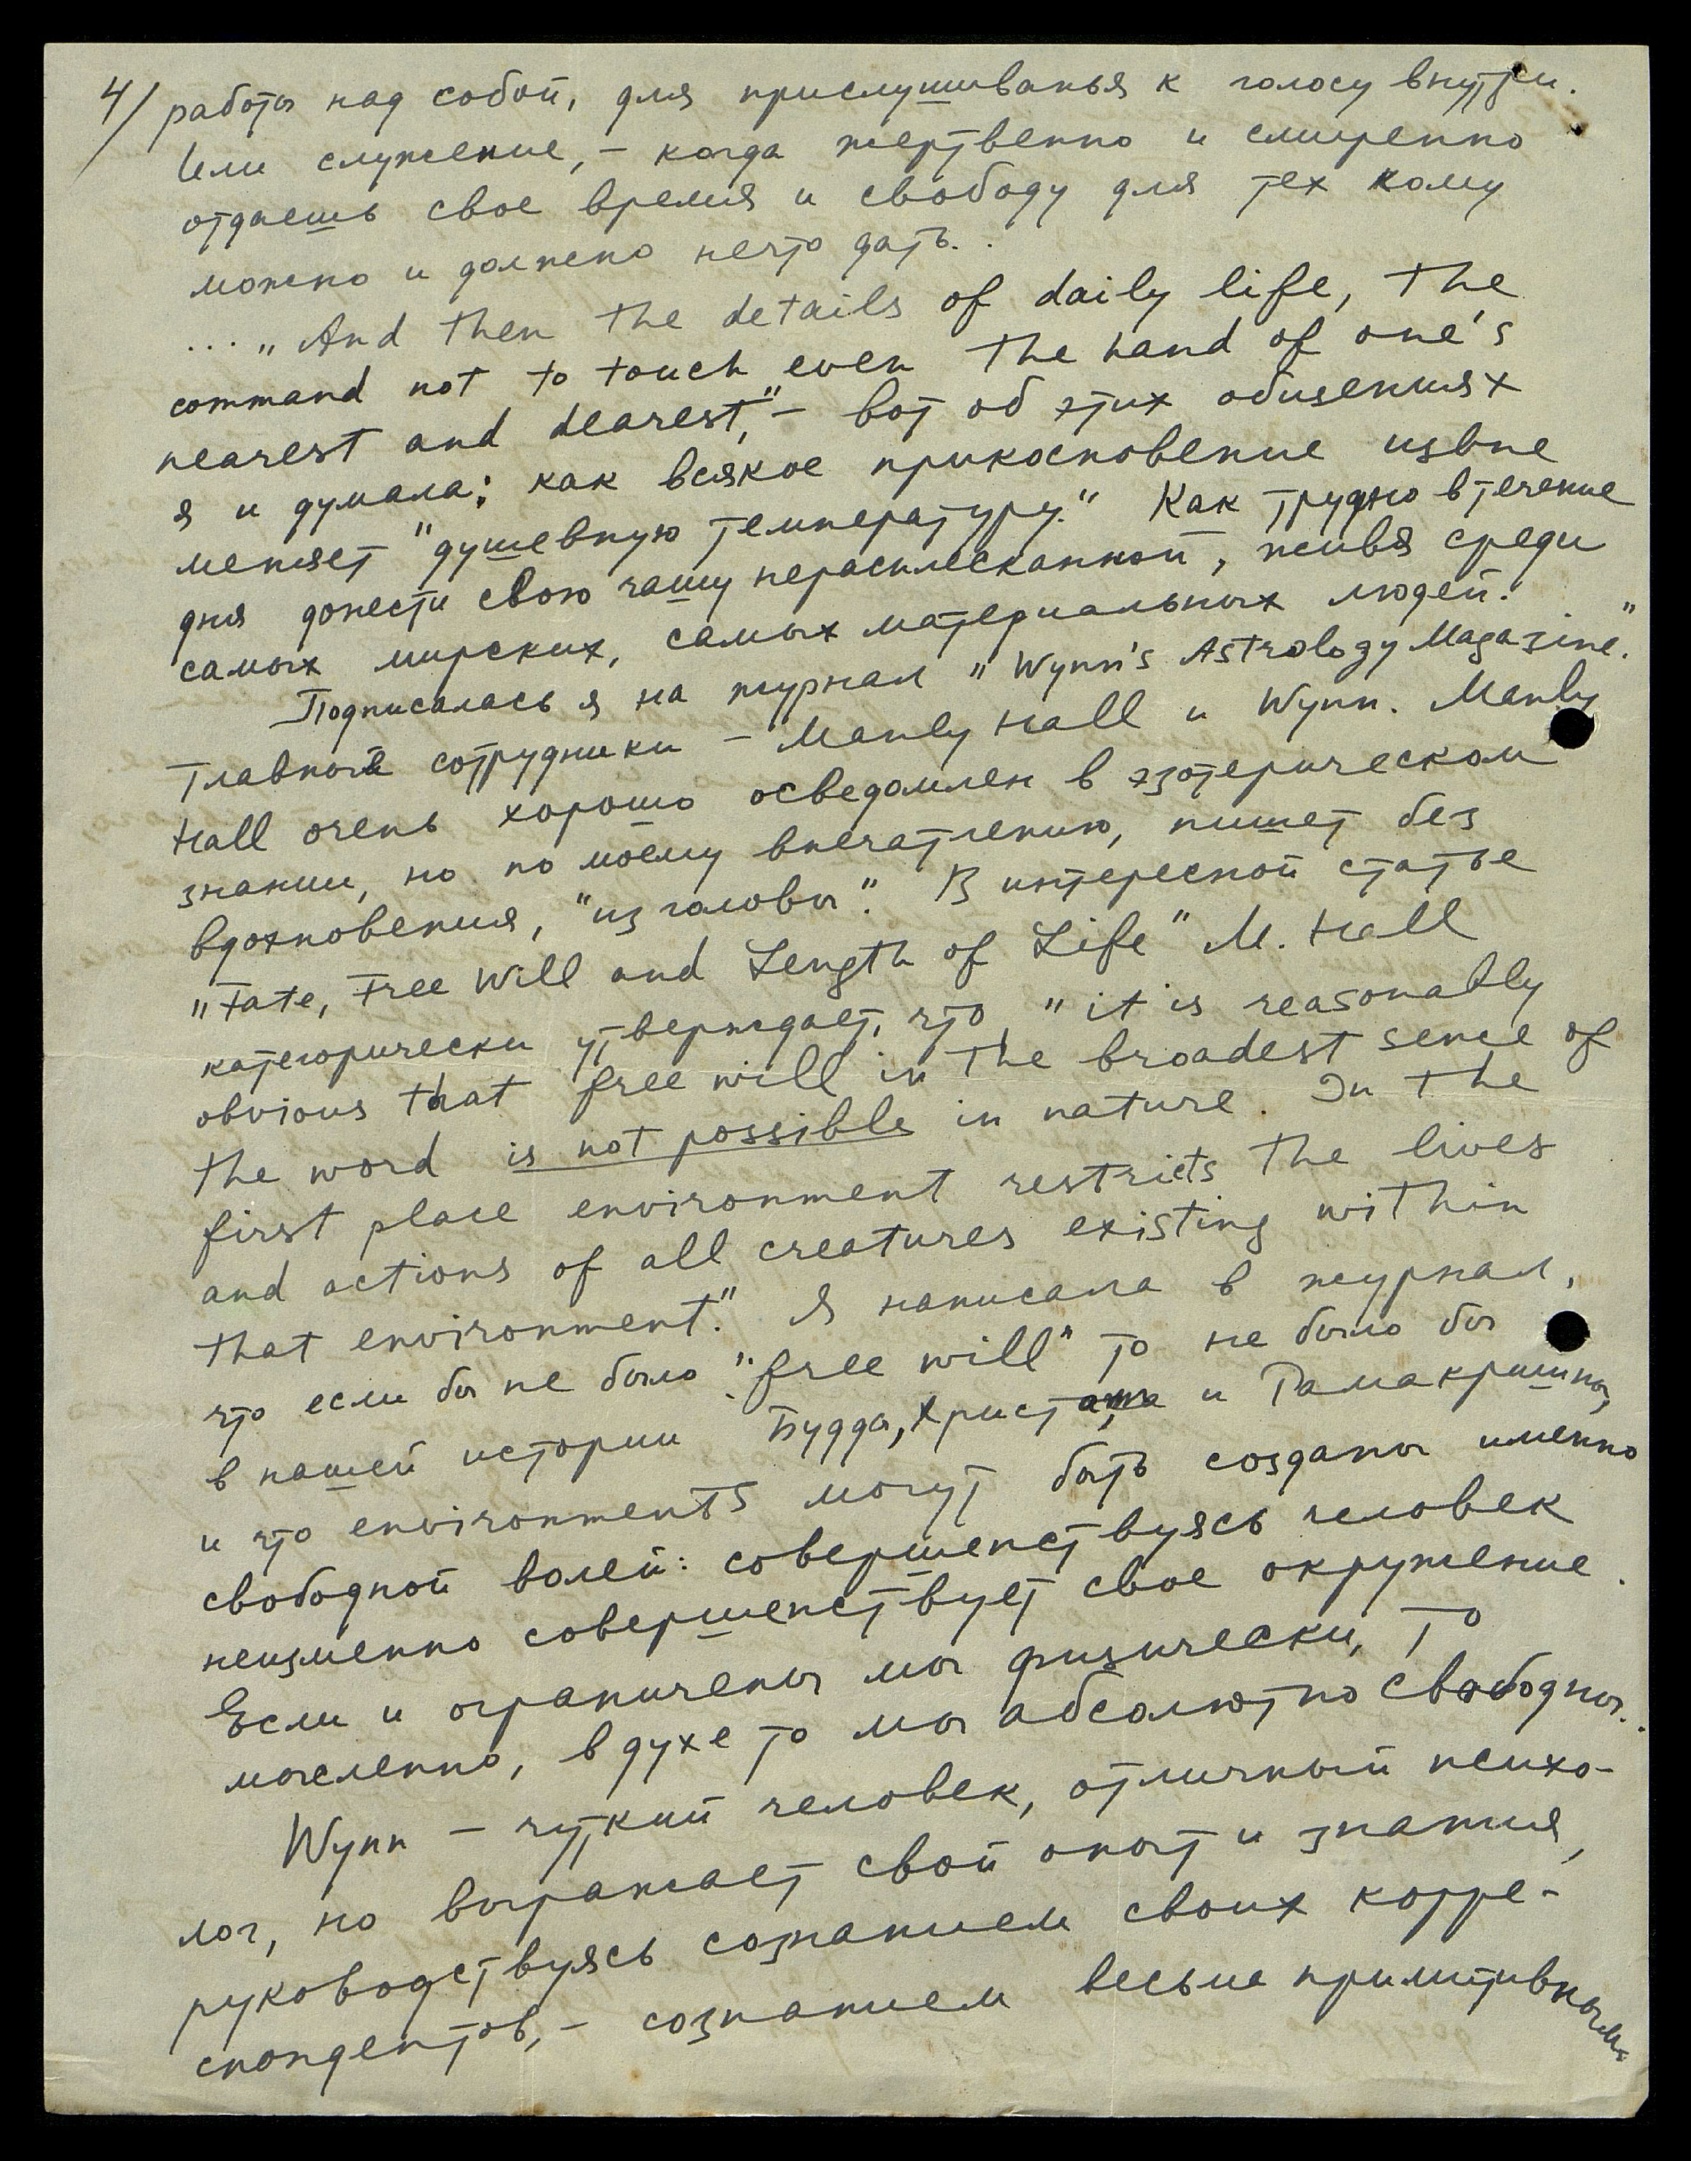 4/ работы над собой, для прислушиванья к голосу внутри.
Или служение, – когда жертвенно и смиренно
отдаешь свое время и свободу для тех кому
можно и должно нечто дать. .
... „And then the details of daily life, the
command not to touch even the hand of one's
nearest and dearest," – вот об этих общениях
я и думала; как всякое прикосновение извне
меняет "душевную температуру." Как трудно в течение
дня донести свою чашу нерасплесканной, живя среди
самых мирских, самых материальных людей.
Подписалась я на журнал „Wynn's Astrology Magazine."
Главные сотрудники – Manly Hall и Wynn. Manly
Hall очень хорошо осведомлен в эзотерическом
знании, но по моему впечатлению, пишет без
вдохновения, "из головы". В интересной статье
„Fate, Free Will and Length of Life" M. Hall
категорически утверждает, что „it is reasonably
obvious that free will in the broadest sence of
the word is not possible in nature. In the
first place environment restricts the lives
and actions of all creatures existing within
that environment." Я написала в журнал,
что если бы не было "free will" то не было бы
в нашей истории Будды, Христа и Рамакришны,
и что environments могут быть созданы именно
свободной волей: совершенствуясь человек
неизменно совершенствует свое окружение.
Если и ограничены мы физически, то
мысленно, в духе то мы абсолютно свободны..
Wynn – чуткий человек, отличный психо-
лог, но выражает свой опыт и знания,
руководствуясь сознанием своих корре-
спондентов, – сознанием весьма примитивным.